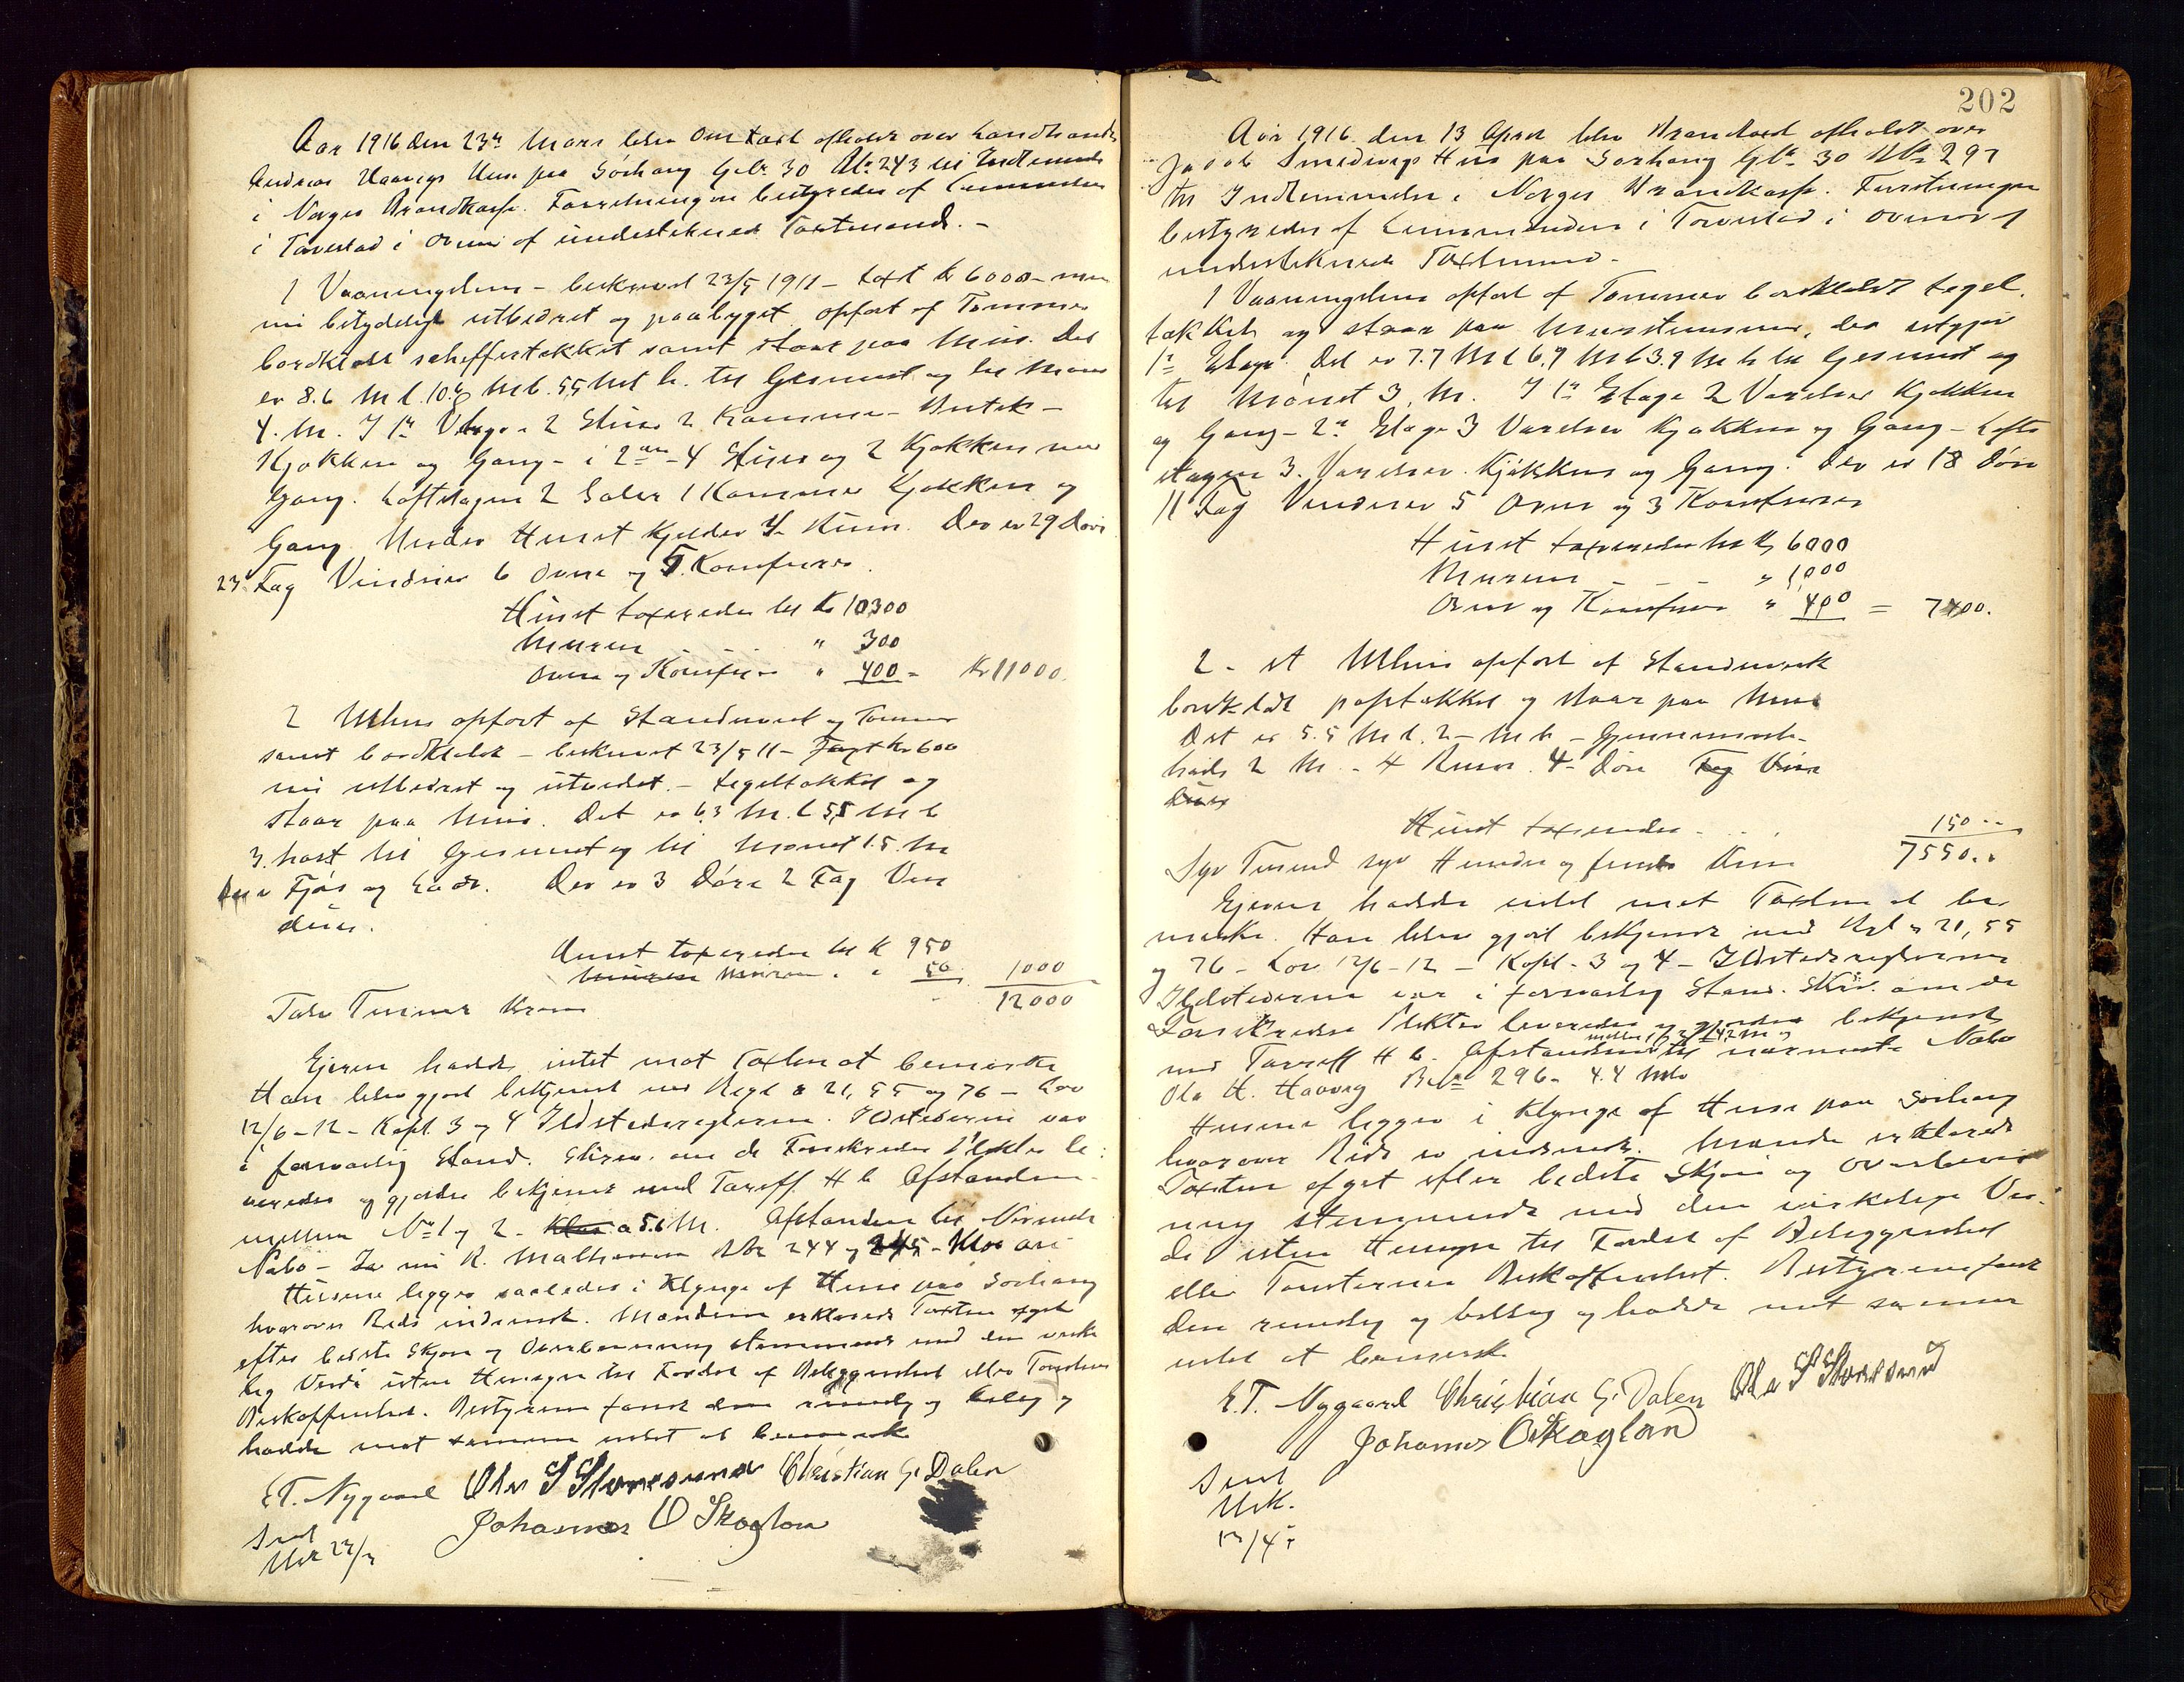 Aar 1916 den 23de Mars blev Omtaxt afholdt over Landhandl
Andreas Haavigs Huse paa Sörhaug Gbr. 30 Bbr 243 til Indlemmelse
i Norges Brandkasse. Forretningen bestyredes af Lensmanden
i Torvestad i Overvær af underteknede Taxtmænd. -
1 Vaaningshus - beskrevet 23/5 1911 - taxt kr 6000 - men
nu betydelig utbedret og paabygget opført af Tømmer
bordklædt schiffertækket samt staar paa Mur. Det
er 8.6 M l. 10.6 M b. 5,5 Met h. til Gesimset og til Mønet
4. M. I 1ste Etage - 2 Stuer 2 Kammer - Butik -
Kjøkken og Gang - i 2den - 4 Stuer og 2 Kjøkken med
Gang. Loftetagen 2 Saler 1 Kammer Kjøkken og
Gang. Under Huset Kjelder 4 Rum. Der er 29 Døre
23 Fag Vinduer 6 Ovne og 5 Komfurer.
Huset taxeredes til Kr 10300
Muren " 300
Ovne og Komfurer " 400 = Kr 11000.
2 Uthus opført af Standværk og Tømmer
samt bordklædt - beskrevet 23/5 11 - Taxt kr 600
nu utbedret og utvidet. - tegeltækket og
staar paa Mur. Det er 6.3 M. l 5,5 M b
3. høit til Gesimset og til Mønet 1.5. M
Der er Fjøs og Lade. Der er 3 Döre 2 Fag Vin
duer.
Huset taxeredes til K 950
Muren Muren . " 50 1000
Tolv Tusinde Kroner 12000
Ejeren hadde intet mot Taxten at bemærke
Han blev gjort bekjent med Regl § 21, 55 og 76 - Lov
12/6 - 12 - Kapt. 3 og 4 Ildstedsreglerne. Ildstederne var
i forsvarlig Stand. Skriv. om de Forsikredes Plikter le:
veredes og gjordes bekjent med Tariff H b Afstanden
mellem No 1 og 2 - Klos a 5.6 M. Afstanden til Nærmeste
Nabo - R. Mathiesen Bbr 244 og 245 - Klos ari
Husene ligger saaledes i Klynge af Huse paa Sörhaug
hvorover Rids indsendt. Mændene erklærede Taxten afgit
efter bedste Skjøn og Overbevisning stemmende med den virke
lig Værdi uten Hensyn til Fordel af Beliggenhed eller Tomtens
Beskaffenhet. Bestyreren fandt den rimelig og billig og
hadde mot samme intet at bemærke
E.T. Nygaard Ole S Storesund Christian G. Dalen
Johannes O Skoglon
Sent
Utsk 23/3
202
Aar 1916 den 13 April blev Brandtaxt afholdt over
Jacob Smedsvigs Hus paa Sørhaug Gbr 30 Bbr 297
til Indlemmelse i Norges Brandkasse. Forretningen
bestyredes af Lensmanden i Torvestad i Overvær af
undertekнede Taxtmænd.
1 Vaaningshus opført af Tømmer bordklædt tegel
tækket og staar paa Murstensmur, der utgjør
1ste Etage. Det er 7.7 M l 6.9 M b 3.9 M h til Gesimset og
til Mönet 3. M. I 1ste Etage 2 Værelser Kjøkken
og Gang - 2den Etage 3 Værelser Kjøkken og Gang - Loft
etagen 3. Værelser Kjøkken og Gang. Der er 18 Döre
11 Fag Vinduer 5 Ovne og 3 Komfurer
Huset taxeredes til Kr 6000
Muren - - - " 1000
Ovne og Komfurer " 400 = 7400.
2 - et Uthus opført af Standværk
bordklædt paptækket og staar paa Mur
Det er 5.5 M l. 2 - M b - Gjennemsnits-
høide 2 M. - 4 Rum. 4 Döre Fag Vin
duer
Huset taxeredes . . . 150 --
Syv Tusind syv Hundre og femti Kroner 7550..
Ejeren hadde intet mot Taxten at be
mærke. Han blev gjort bekjendt med Regl § 21, 55
og 76 - Lov 12/6 - 12 - Kapt. 3 og 4 - Ildstedsreglerne
Ildstederne var i forsvarlig Stand. Skriv. om de
Forsikredes Plikter leveredes og gjordes bekjendt
med Tariff H b. Afstanden til nærmeste Nabo
Ola H. Haavig Bbr 296 - 4.4 Met
Husene ligger i Klynge af Huse paa Sörhaug
hvorover Rids er indsendt. Mændene erklærede
Taxten afgit efter bedste Skjøn og Overbevis
ning stemmende med den virkelige Vær-
di uten Hensyn til Fordel af Beliggenhed
eller Tomternes Beskaffenhet. Bestyreren fandt
den rimelig og billig og hadde mot samme
intet at bemærke
E.T. Nygaard Christian G. Dalen Ole S Storesund
Johannes O Skoglon
Sent
Utsk.
13/4